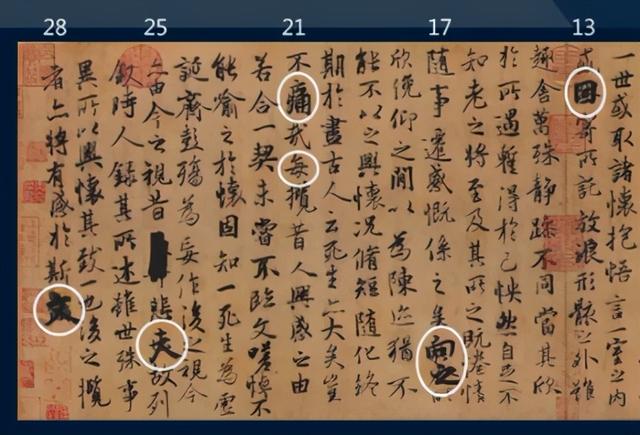 28 25 21 17 13
一世或取諸懷抱悟言一室之內
或因寄所託放浪形骸之外雖
趣舍萬殊靜躁不同當其欣
於所遇蹔得於己怏然自足不
知老之將至及其所之既惓情
隨事遷感慨係之矣向之所
欣俛仰之閒以為陳迹猶不
能不以之興懷況脩短隨化終
期於盡古人云死生亦大矣豈
不痛哉每攬昔人興感之由
若合一契未嘗不臨文嗟悼不
能喻之於懷固知一死生為虛
誕齊彭殤為妄作後之視今
亦由今之視昔悲夫故列
敘時人錄其所述雖世殊事
異所以興懷其致一也後之攬
者亦將有感於斯文